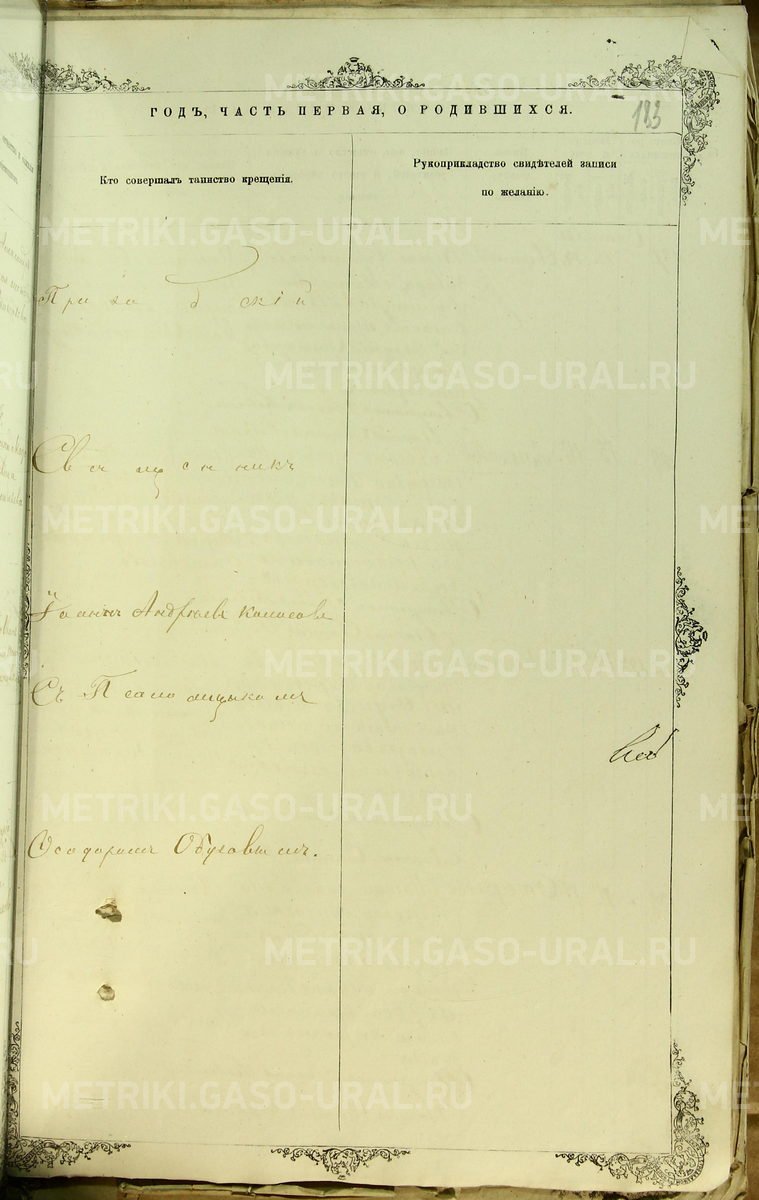 ГОДЪ, ЧАСТЬ ПЕРВАЯ, О РОДИВШИХСЯ.
Кто совершалъ таинство крещенія.
Рукоприкладство свидѣтелей записи
по желанію.
Священникъ
Іоаннъ Андреевъ
Съ Псаломщикомъ
Ѳеодоромъ Обуховымъ.
METRIKI.GASO-URAL.RU